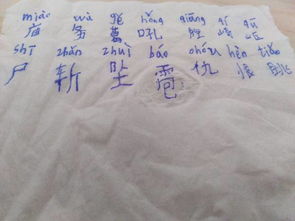 miào wù gě hǒng qiāng qí qū
庙 务 葛 吼 腔 崎 岖
shī zhǎn zhuì báo chóu hèn tiào
尸 斩 坠 雹 仇 恨 跳